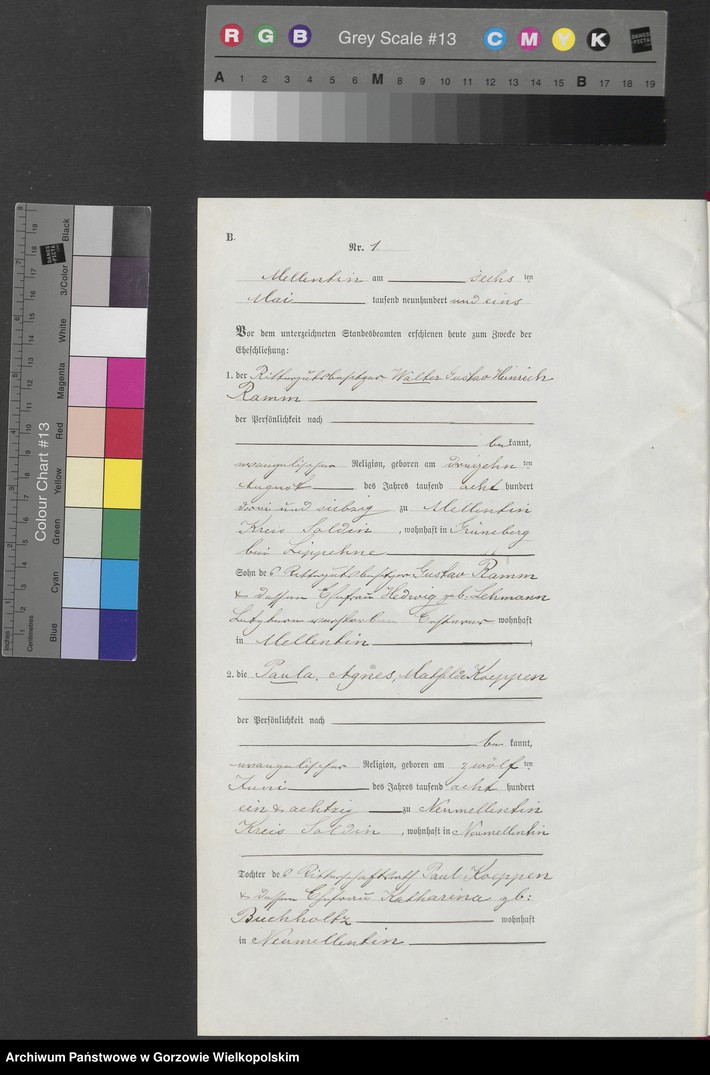 R G B Grey Scale #13 C M Y K DANES PICTA
A 1 2 3 4 5 6 M 8 9 10 11 12 13 14 15 B 17 18 19
Colour Chart #13
Blue Cyan Green Yellow Red Magenta White 3/Color Black
Inches Centimetres
B.
Nr. 1
Mellentin am sechs ten
Mai tausend neunhundert und eins
Vor dem unterzeichneten Standesbeamten erschienen heute zum Zwecke der
Eheschließung:
1. der Rittergutsbesitzer Walter Gustav Heinrich
Ramm
der Persönlichkeit nach
be kannt,
evangelischer Religion, geboren am dreizehn ten
August des Jahres tausend acht hundert
drei und siebzig zu Mellentin
Kreis Soldin, wohnhaft in Grüneberg
bei Lippehne
Sohn des Rittergutsbesitzer Gustav Ramm
& dessen Ehefrau Hedwig geb. Lehmann
Letztere verstorben Ersterer wohnhaft
in Mellentin
2. die Paula, Agnes, Mathilde Koeppen
der Persönlichkeit nach
be kannt,
evangelischer Religion, geboren am zwölf ten
Juni des Jahres tausend acht hundert
ein & achtzig zu Neumellentin
Kreis Soldin, wohnhaft in Neumellentin
Tochter des Ritterschaftsrath Paul Koeppen
& dessen Ehefrau Katharina gb:
Buchholtz wohnhaft
in Neumellentin
Archiwum Państwowe w Gorzowie Wielkopolskim